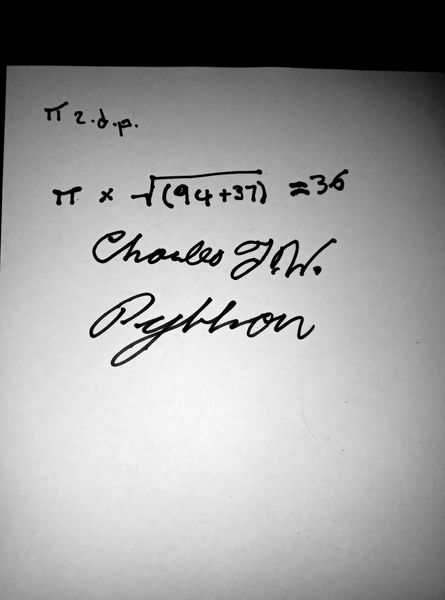 π 2.d.p.
π × √(94+37) ≈ 36
Charles J.W.
Pybhon